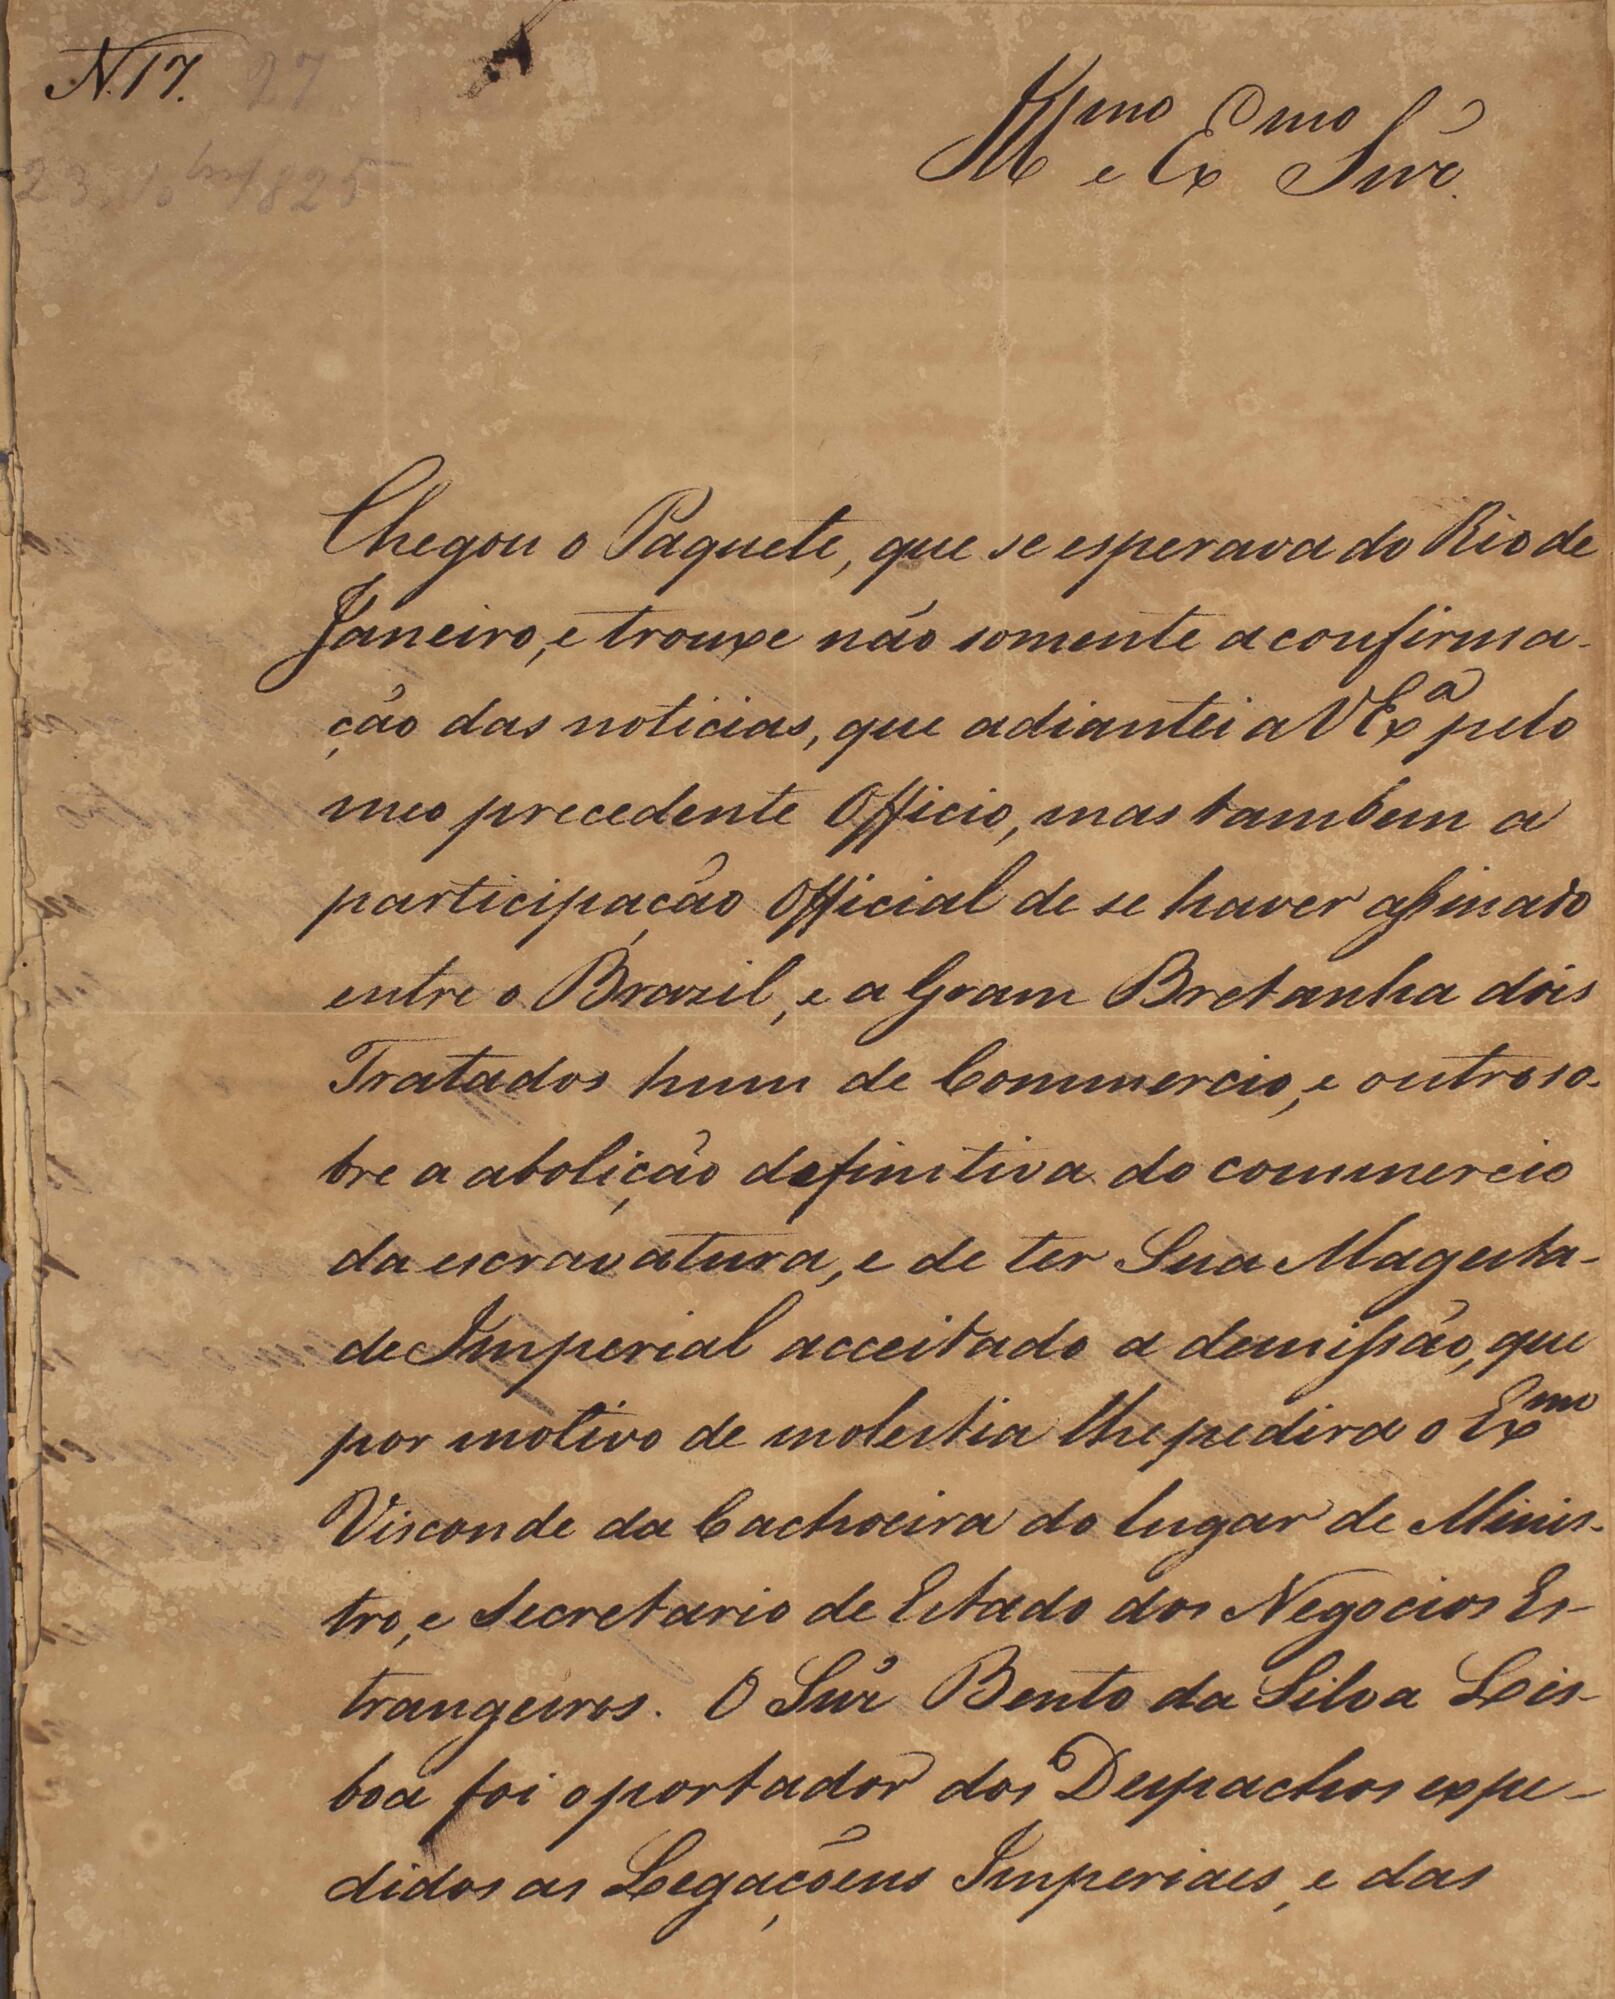 N. 17. 27
23. 10br 1825
Illmo e Exmo Snr.
Chegou o Paquete, que se esperava do Rio de
Janeiro, e trouxe não somente a confirma-
ção das noticias, que adiantei a V Exa pelo
meo precedente Officio, mas tambem a
participação Official de se haver assinado
entre o Brazil, e a Gram Bretanha dois
Tratados hum de Commercio, e outro so-
bre a abolição definitiva do commercio
da escravatura, e de ter Sua Magesta-
de Imperial acceitado a demissão, que
por motivo de molestia lhe pedira o Exmo
Visconde da Cachoeira do lugar de Minis-
tro, e Secretario de Estado dos Negocios Es-
trangeiros. O Snr Bento da Silva Lis-
boa foi o portador dos Despachos expe-
didos as Legaçõens Imperiaes, e das